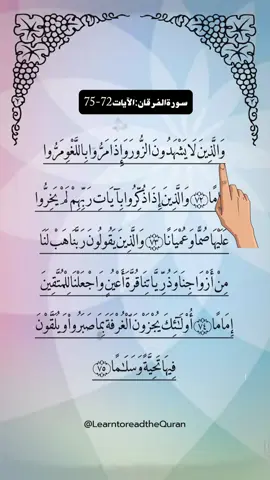 سورة الفرقان: الآيات 72-75
وَالَّذِينَ لَا يَشْهَدُونَ الزُّورَ وَإِذَا مَرُّوا بِاللَّغْوِ مَرُّوا
مًا ﴿٧٢﴾ وَالَّذِينَ إِذَا ذُكِّرُوا بِآيَاتِ رَبِّهِمْ لَمْ يَخِرُّوا
عَلَيْهَا صُمًّا وَعُمْيَانًا ﴿٧٣﴾ وَالَّذِينَ يَقُولُونَ رَبَّنَا هَبْ لَنَا
مِنْ أَزْوَاجِنَا وَذُرِّيَّاتِنَا قُرَّةَ أَعْيُنٍ وَاجْعَلْنَا لِلْمُتَّقِينَ
إِمَامًا ﴿٧٤﴾ أُوْلَئِكَ يُجْزَوْنَ الْغُرْفَةَ بِمَا صَبَرُوا وَيُلَقَّوْنَ
فِيهَا تَحِيَّةً وَسَلَامًا ﴿٧٥﴾
@LearntoreadtheQuran